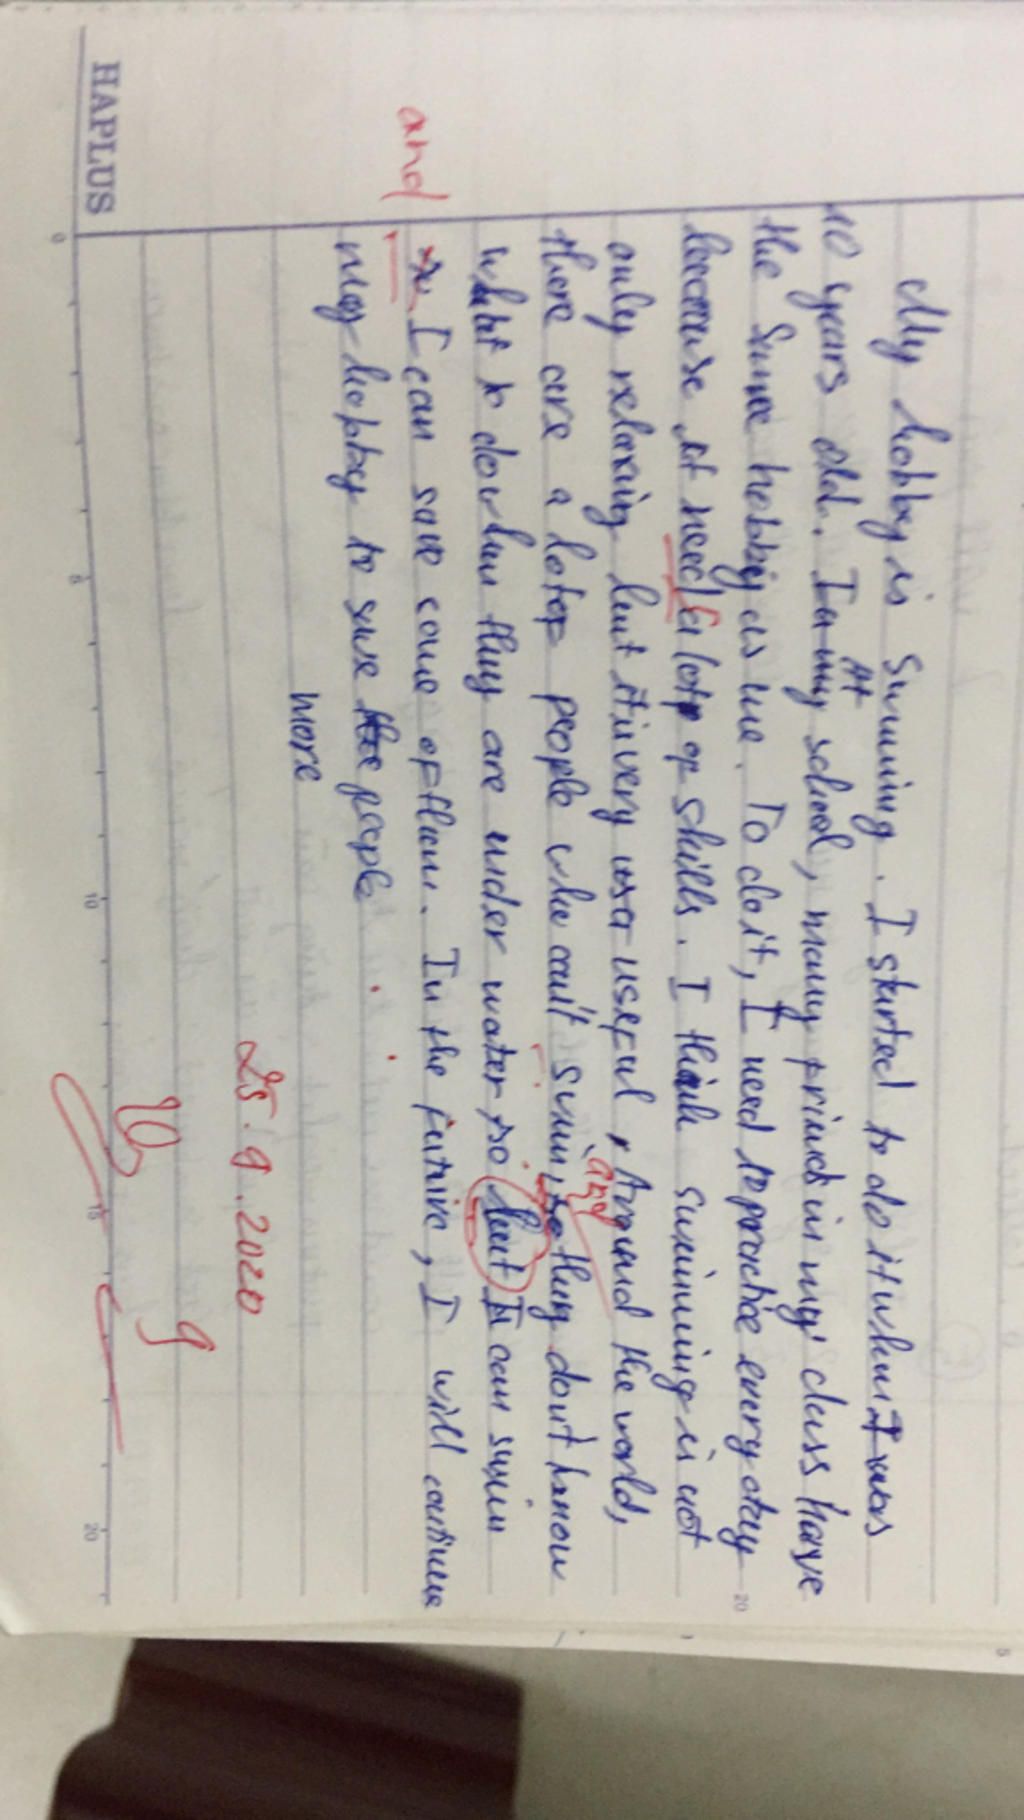 My hobby is Swimming. I started to do it when I was
10 years old. In my school, many friends in my class have
At
the same hobby as me. To do it, I need to practice every day
because it need a lot of skills. I think swimming is not
only relaxing but it is very useful, Around the world,
and
there are a lot of people who can't swim so they don't know
what to do when they are under water so but I can swim
and
so I can save some of them. In the future, I will continue
my hobby to save the people
more
25.9.2020
9
HAPLUS
0
5
10
15
20
20
5